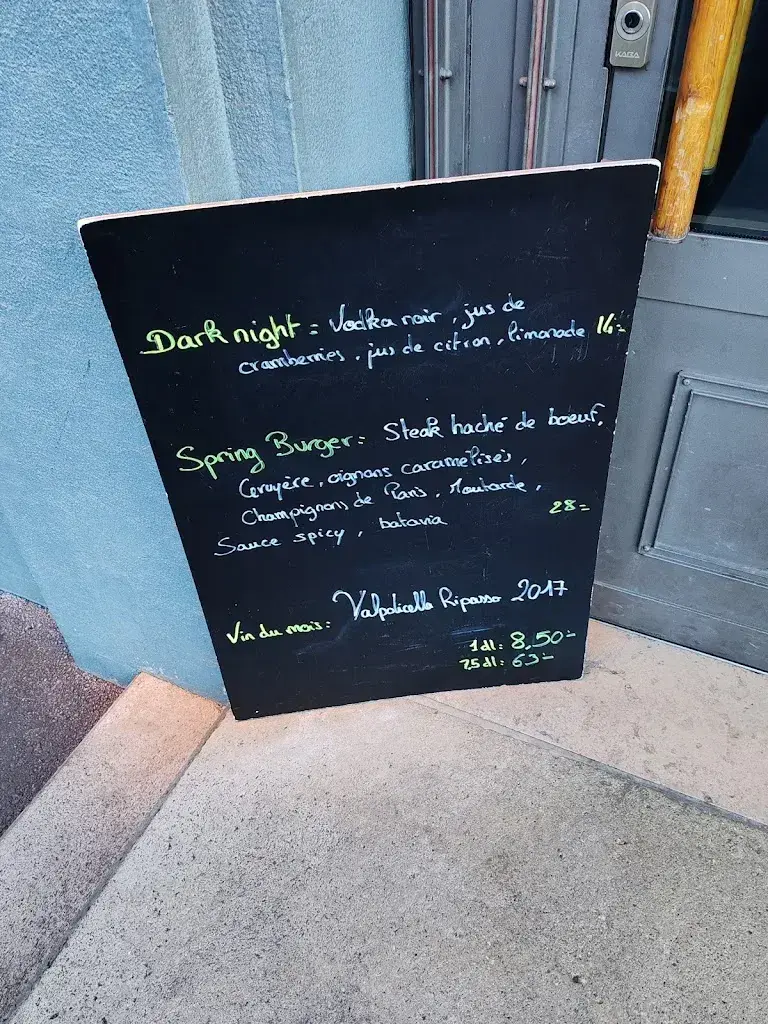 KABA
Dark night = Vodka noir, jus de
cramberries, jus de citron, limonade 14.-
Spring Burger: Steak haché de boeuf,
Gruyère, oignons caramélisés,
Champignons de Paris, Moutarde,
Sauce spicy, batavia 28.-
Vin du mois: Valpolicella Ripasso 2017
1dl: 8,50.-
75dl: 63.-